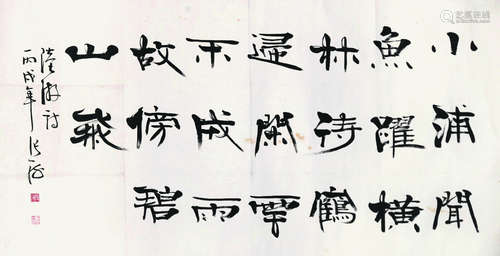 小浦聞
魚躍橫
林待鶴
歸閑雲
不成雨
故傍碧
山飛
陸游詩
丙戌年 張